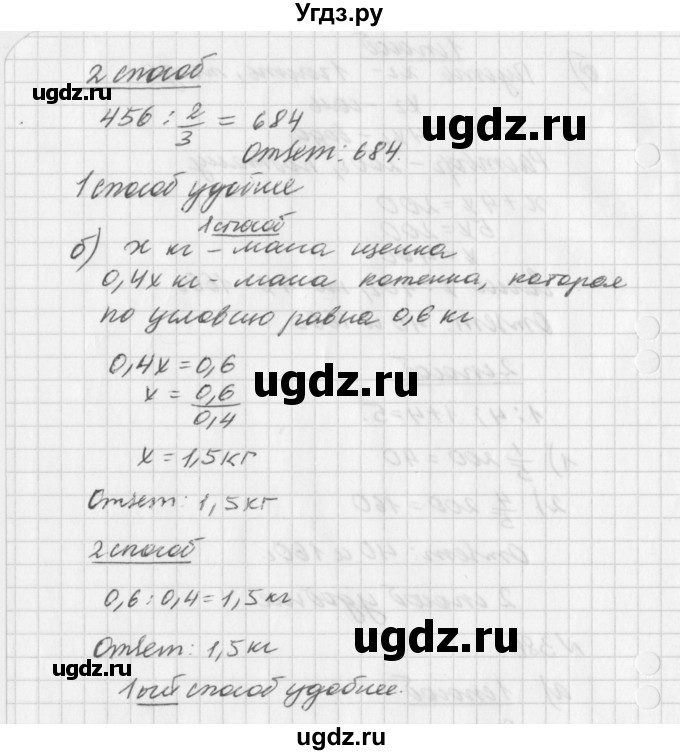 Угдз.ру
2 способ
456 : 2/3 = 684
Ответ: 684.
1 способ удобнее
1 способ
б) x кг - масса щенка
0,4x кг - масса котенка, которая
по условию равна 0,6 кг
0,4x = 0,6
x = 0,6/0,4
x = 1,5 кг
Ответ: 1,5 кг
2 способ
0,6 : 0,4 = 1,5 кг
Ответ: 1,5 кг
1ый способ удобнее.
ugdz.ru
ugdz.ru
ugdz.ru
ugdz.ru
ugdz.ru
ugdz.ru
ugdz.ru
ugdz.ru